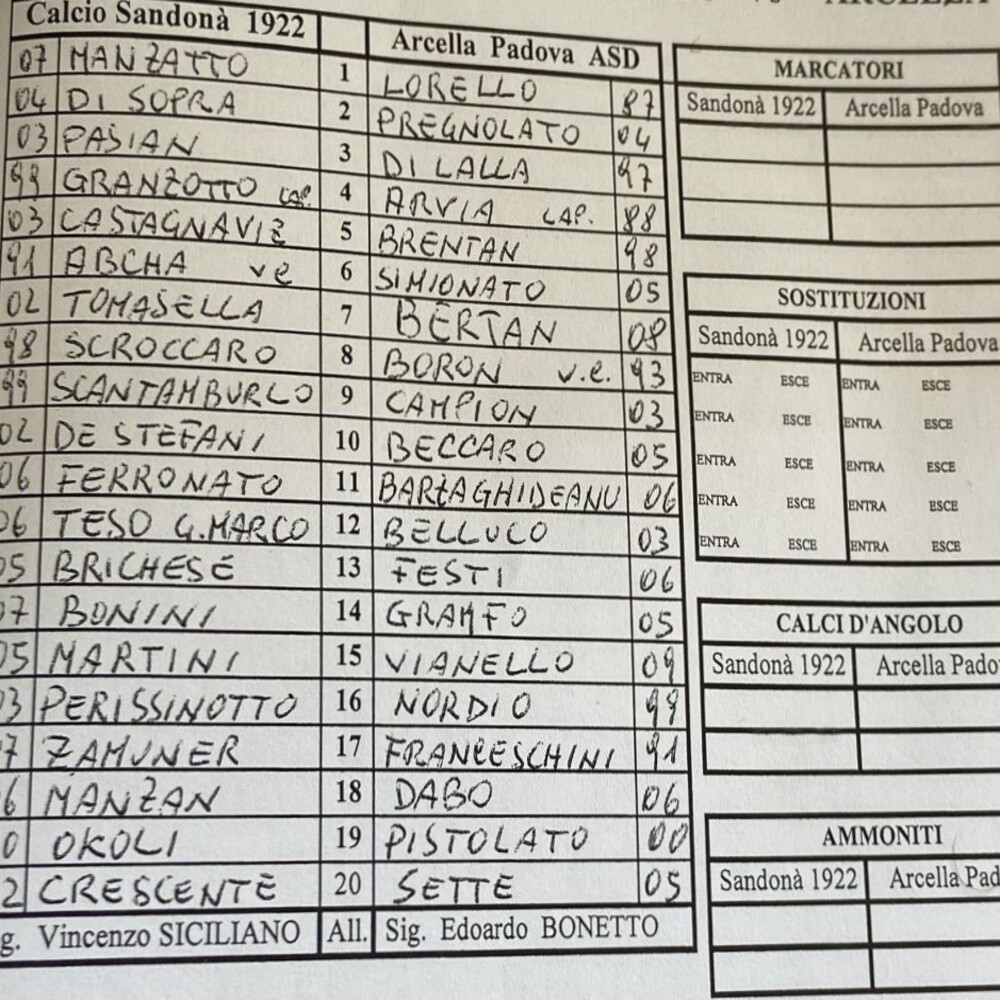 Calcio Sandonà 1922 Arcella Padova ASD
07 MANZATTO 1 LORELLO 87
04 DI SOPRA 2 PREGNOLATO 04
03 PASIAN 3 DI LALLA 97
99 GRANZOTTO CAP. 4 ARVIA CAP. 88
03 CASTAGNAVIZ 5 BRENTAN 98
91 ABCHA ve 6 SIMIONATO 05
02 TOMASELLA 7 BERTAN 08
98 SCROCCARO 8 BORON v.e. 93
99 SCANTAMBURLO 9 CAMPION 03
02 DE STEFANI 10 BECCARO 05
06 FERRONATO 11 BARZAGHIDEANU 06
06 TESO G.MARCO 12 BELLUCO 03
05 BRICHESE 13 FESTI 06
07 BONINI 14 GRAMFO 05
05 MARTINI 15 VIANELLO 09
03 PERISSINOTTO 16 NORDIO 99
7 ZAMUNER 17 FRANCESCHINI 91
6 MANZAN 18 DABO 06
0 OKOLI 19 PISTOLATO 00
2 CRESCENTE 20 SETTE 05
g. Vincenzo SICILIANO All. Sig. Edoardo BONETTO
ARCELLA
MARCATORI
Sandonà 1922 Arcella Padova
SOSTITUZIONI
Sandonà 1922 Arcella Padova
ENTRA ESCE ENTRA ESCE
ENTRA ESCE ENTRA ESCE
ENTRA ESCE ENTRA ESCE
ENTRA ESCE ENTRA ESCE
ENTRA ESCE ENTRA ESCE
CALCI D'ANGOLO
Sandonà 1922 Arcella Pado
AMMONITI
Sandonà 1922 Arcella Pad